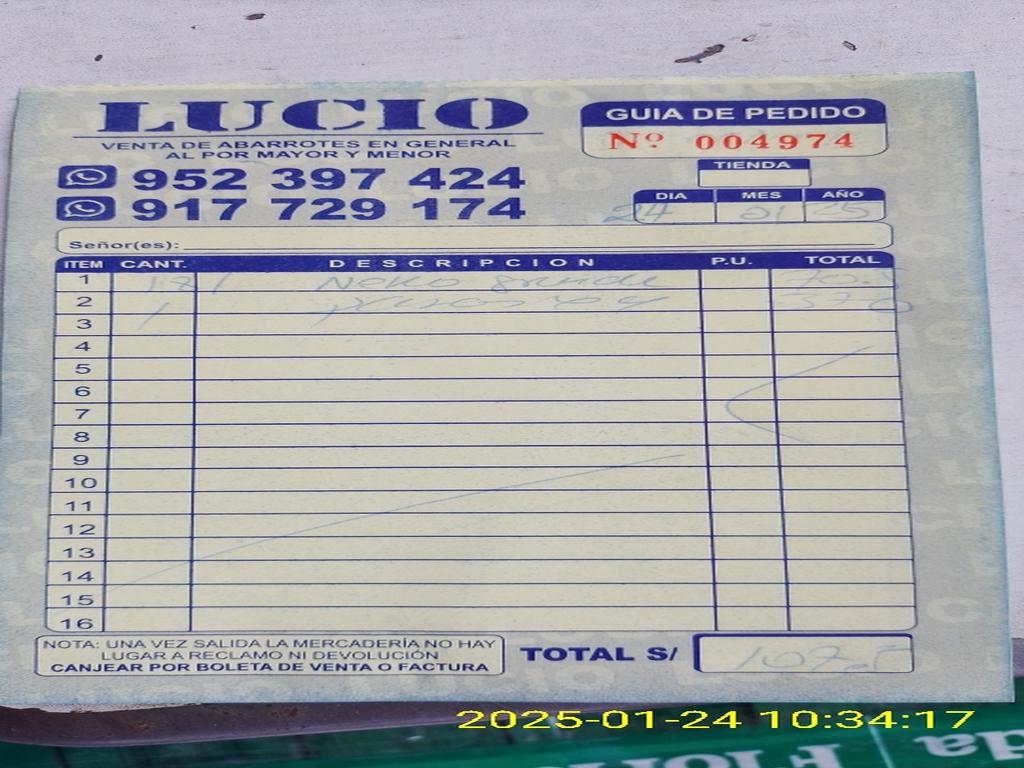 LUCIO
VENTA DE ABARROTES EN GENERAL
AL POR MAYOR Y MENOR
952 397 424
917 729 174
GUIA DE PEDIDO
Nº 004974
TIENDA
DIA MES AÑO
24 01 25
Señor(es):
ITEM CANT. DESCRIPCION P.U. TOTAL
1
2
3
4
5
6
7
8
9
10
11
12
13
14
15
16
NOTA: UNA VEZ SALIDA LA MERCADERÍA NO HAY
LUGAR A RECLAMO NI DEVOLUCIÓN
CANJEAR POR BOLETA DE VENTA O FACTURA
TOTAL S/ 107.5
2025-01-24 10:34:17